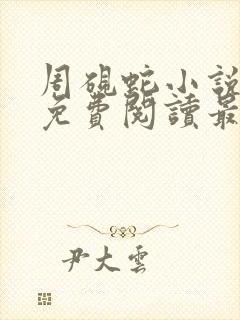 周硯蛇小說
免費閱讀最
尹大雲